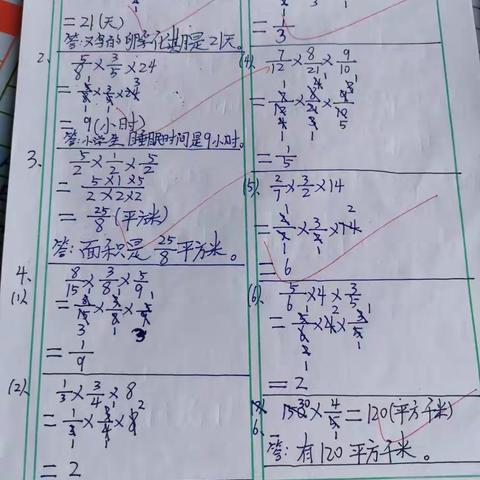 = 21(天)
答:父母的孵化期是21天。
2. 5/8 × 3/5 × 24
= 5/8 × 3/5 × 24
= 9(小时)
答:小学生睡眠时间是9小时。
3. 5/2 × 1/2 × 5/2
= 5×1×5/2×2×2
= 25/8 (平方米)
答:面积是25/8平方米。
4.
(1) 8/15 × 3/8 × 5/9
= 8/15 × 3/8 × 5/9
= 1/9
(2) 1/3 × 3/4 × 8
= 1/3 × 3/4 × 8
= 2
= 1/3
(4) 7/12 × 8/21 × 9/10
= 7/12 × 8/21 × 9/10
= 1/5
(5) 2/7 × 3/2 × 14
= 2/7 × 3/2 × 14
= 6
(6) 5/6 × 4 × 3/5
= 5/6 × 4 × 3/5
= 2
6. 150 × 4/5 = 120(平方千米)
答:有120平方千米。